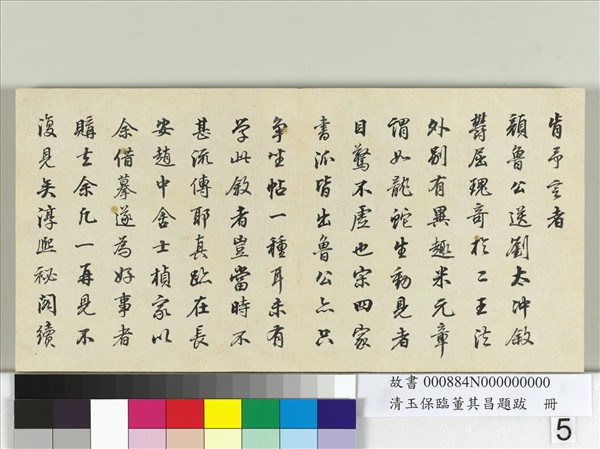 肯予言者
顏魯公送劉太冲敘
鬱屈瑰奇於二王法
外別有異趣米元章
謂如龍蛇生動見者
目驚不虛也宋四家
書派皆出魯公亦只
爭坐帖一種耳未有
學此敘者豈當時不
甚流傳耶真跡在長
安趙中舍士楨家以
余借摹遂為好事者
購去余凡一再見不
復見矣淳熙祕閣續
故書 000884N000000000
清玉保臨董其昌題跋 冊
5